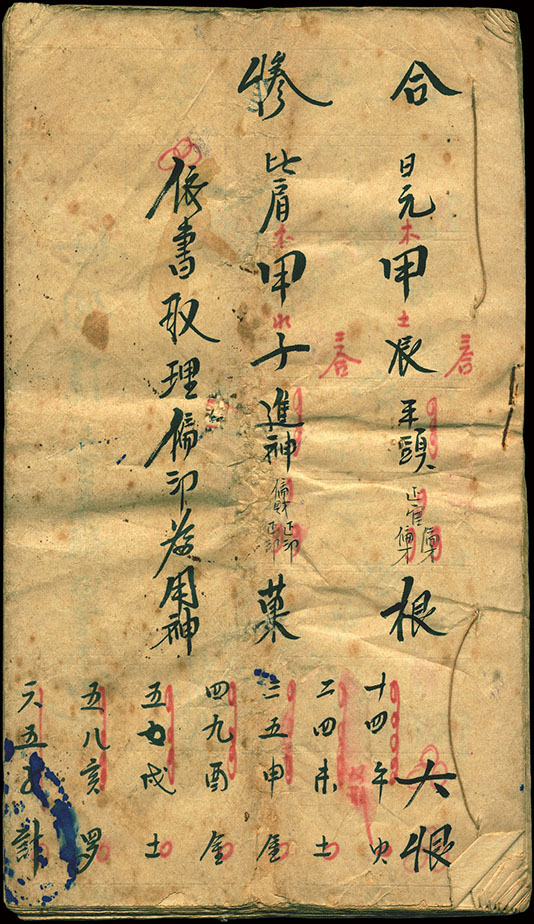 合 日元 木 甲 土 辰 平頭 正官 偏印 偏才 根
三合
大限
慘 比肩 木 甲 水 子 進神 偏財 正印 正印 菓
三合
依書取理偏印為用神
十四午火
二四未土
三五申金
四九酉金
五 戌土
五八亥罗
六五 計